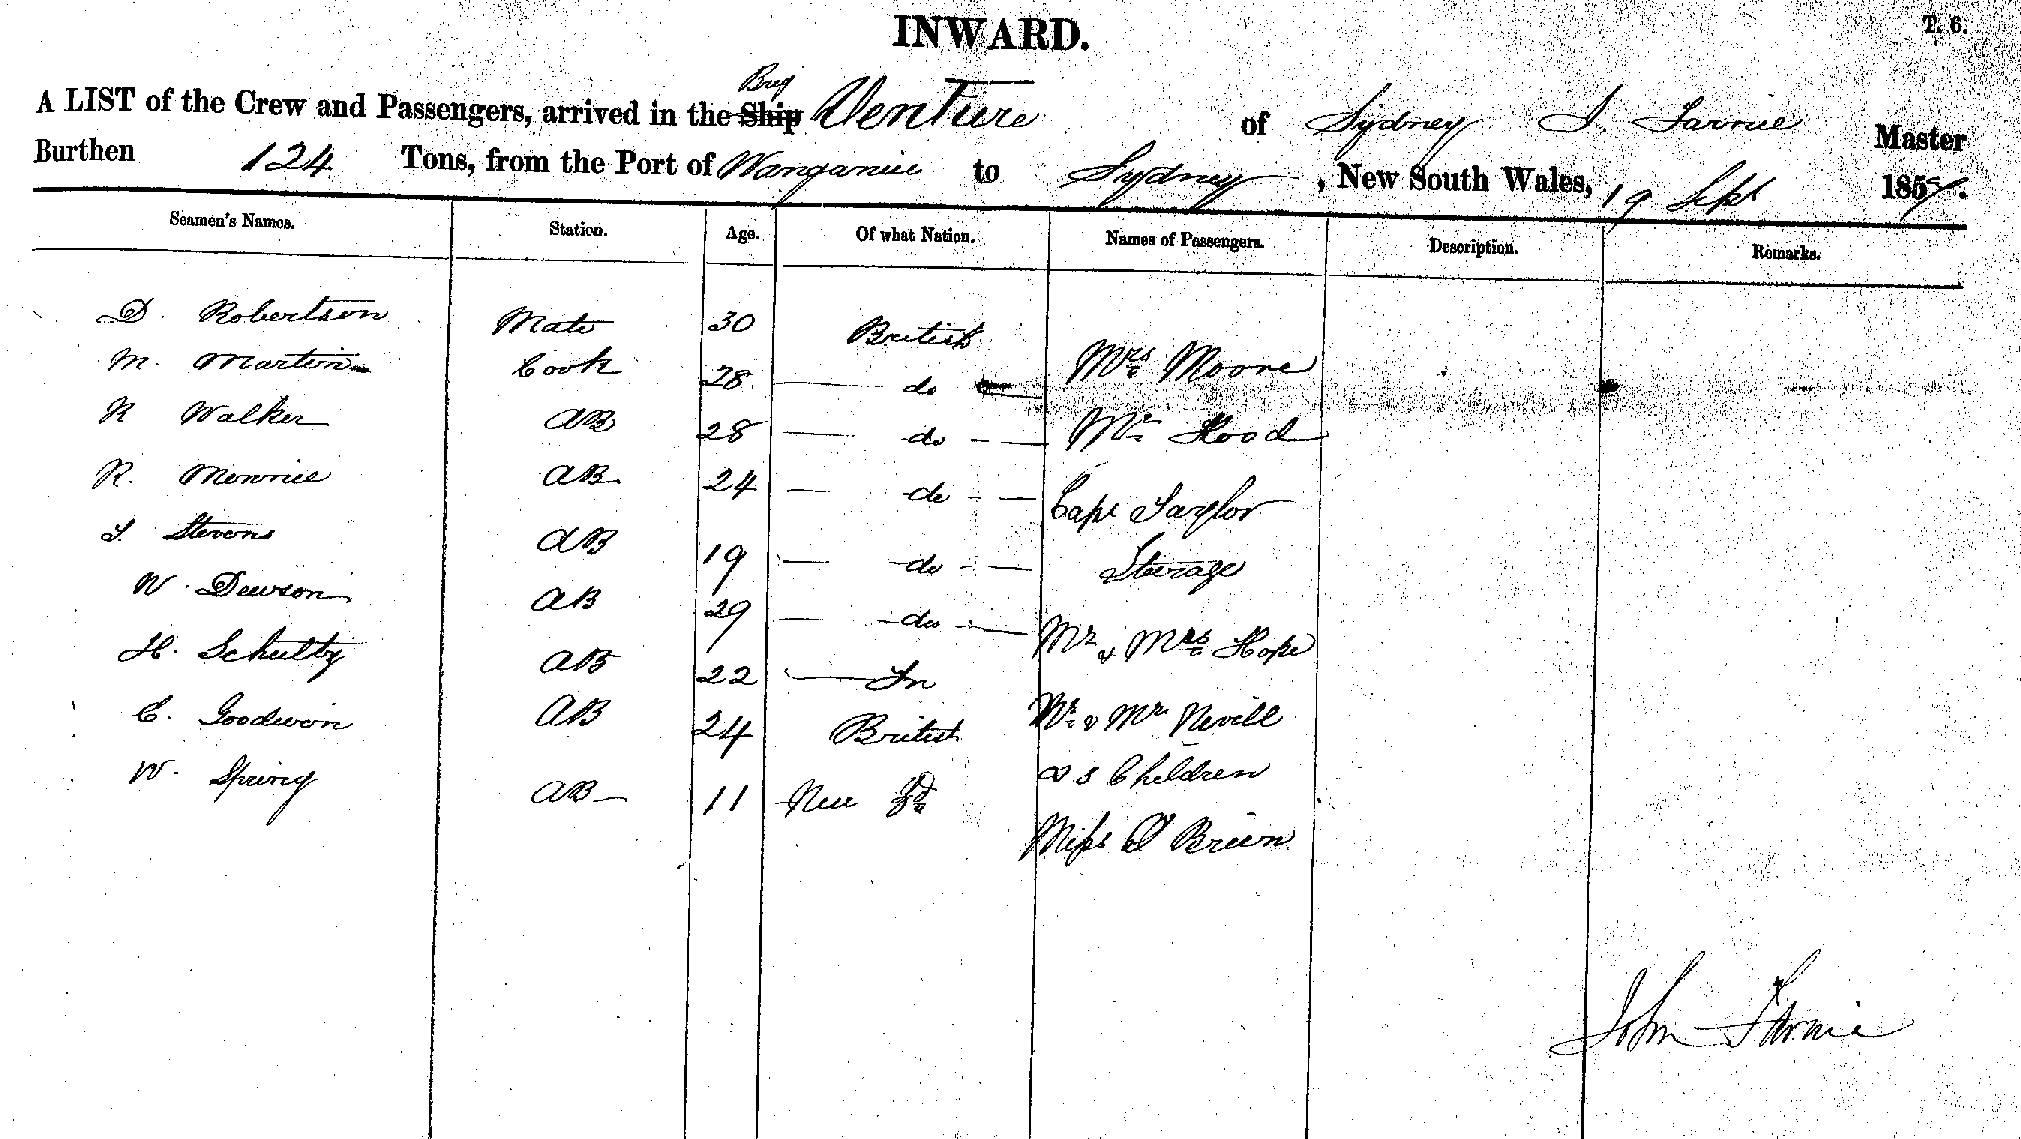 INWARD.
T. 6.
Brig
A LIST of the Crew and Passengers, arrived in the Ship Venture of Sydney J. Farnie Master
Burthen 124 Tons, from the Port of Wanganui to Sydney, New South Wales, 19 Sept 185
Seamen's Names. Station. Age. Of what Nation. Names of Passengers. Description. Remarks.
D. Robertson Mate 30 British
M. Martin Cook 28 do Mrs Moore
R Walker AB 28 do Mr Hood
R. Mennie AB 24 do Capt Taylor
Stevens AB 19 do Steerage
W. Dawson AB 29 do Mr & Mrs Hope
H. Schultz AB 22
C. Goodwin AB 24 British Mr & Mr Nevill
W. Spring AB 11 New Zd Children
Miss O'Brien
John Farnie